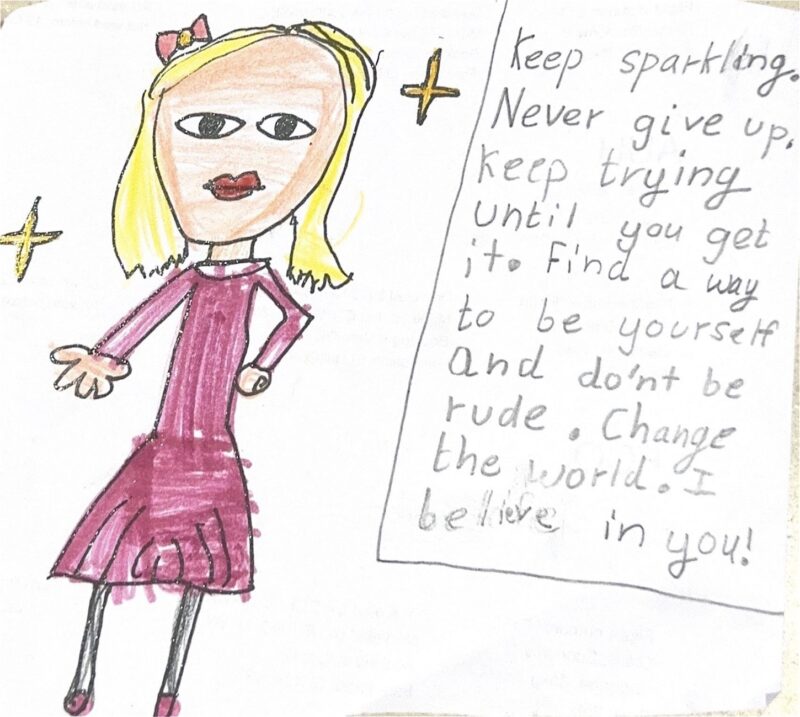 Keep sparkling.
Never give up.
Keep trying
until you get
it. Find a way
to be yourself
and do'nt be
rude. Change
the world. I
believe in you!